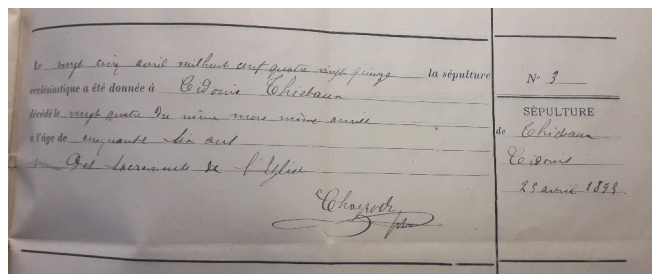 Le vingt cinq avril mil huit cent quatre vingt quinze la sépulture
ecclésiastique a été donnée à Cidonie Thiebaux
décédé le vingt quatre du même mois même année
à l'âge de cinquante six ans
muni des sacrements de l'Eglise
N° 3
SÉPULTURE
de Thiebaux
Cidonie
25 avril 1895